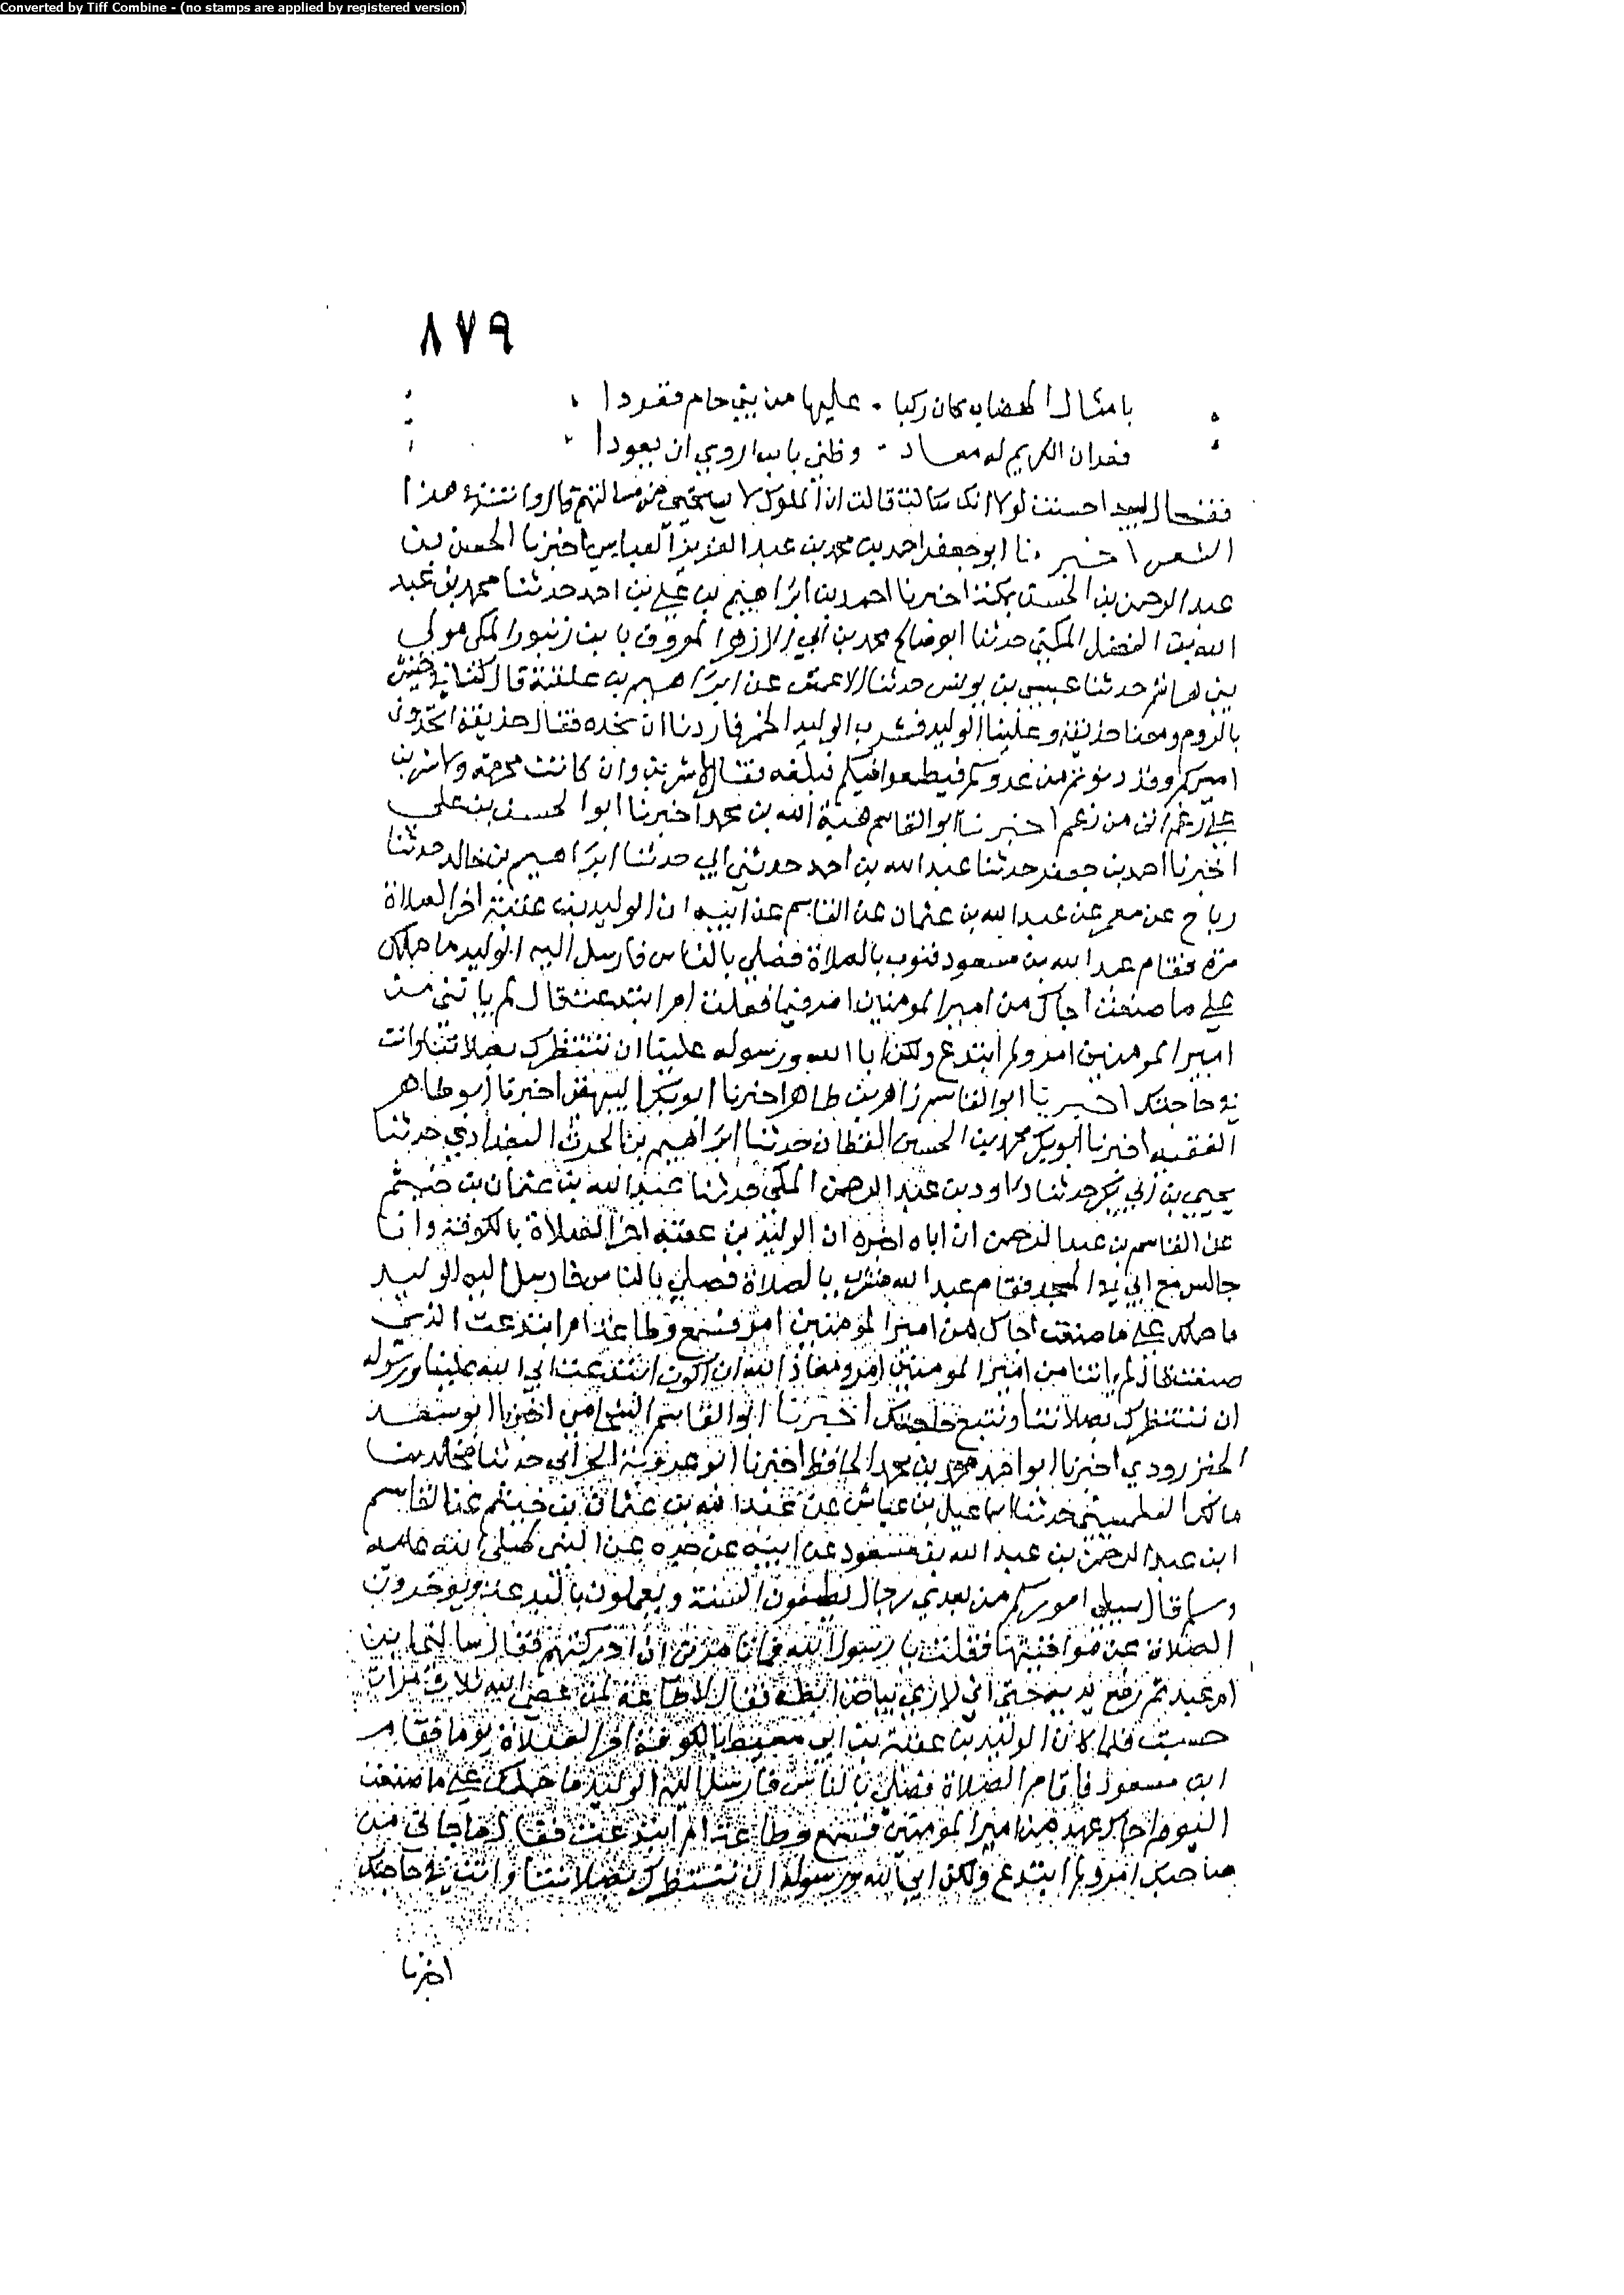 Converted by Tiff Combine - (no stamps are applied by registered version)
٨٧٩
بامثال الهضاب كان ركبا . عليها من بني حام قعودا
فعدان الكريم له معاد . وظني بابن اروي ان يعودا
فقال لبيد احسنت لولا انك سالت قالت ان الملوك لا يستحيي من مسالتهم قال وانت في هذا
الشعر اخبرنا ابو جعفر احمد بن محمد بن عبد العزيز العباسي اخبرنا الحسن بن
عبد الرحمن بن الحسن بمكة اخبرنا احمد بن ابراهيم بن علي بن احمد حدثنا محمد بن عبد
الله بن الفضل المكي حدثنا ابو صالح محمد بن ابي الازهر المعروف بابن زنبور المكي مولي
بني هاشم حدثنا عيسي بن يونس حدثنا الاعمش عن ابراهيم عن علقمة قال كنا في جيش
بالروم ومعنا حذيفة وعلينا الوليد فشرب الوليد الخمر فاردنا ان نحده فقال حذيفة اتحدون
اميركم وقد دنوتم من عدوكم فيطمعوا فيكم فبلغه فقال لاشربن وان كانت محرمة ولاشربن
علي رغم انف من رغم اخبرنا ابو القاسم هبة الله بن محمد اخبرنا ابو الحسن بن علي
اخبرنا احمد بن جعفر حدثنا عبد الله بن احمد حدثني ابي حدثنا ابراهيم بن خالد حدثنا
رباح عن معمر عن عبد الله بن عثمان عن القاسم عن ابيه ان الوليد بن عقبة اخر الصلاة
مرة فقام عبد الله بن مسعود فثوب بالصلاة فصلي بالناس فارسل اليه الوليد ما حملك
علي ما صنعت اجاك من امير المومنين امر فيما فعلت ام ابتدعت قال لم ياتني من
امير المومنين امر ولم ابتدع ولكن ابا الله ورسوله علينا ان ننتظرك بصلاتنا وانت
في حاجتك اخبرنا ابو القاسم زاهر بن طاهر اخبرنا ابو بكر البيهقي اخبرنا ابو طاهر
الفقيه اخبرنا ابو بكر محمد بن الحسين القطان حدثنا ابراهيم بن الحرث البغدادي حدثنا
يحيي بن ابي بكير حدثنا داود بن عبد الرحمن المكي حدثنا عبد الله بن عثمان بن خثيم
عن القاسم بن عبد الرحمن ان اباه اخبره ان الوليد بن عقبة اخر الصلاة بالكوفة وانا
جالس مع ابي في المسجد فقام عبد الله فثوب بالصلاة فصلي بالناس فارسل اليه الوليد
ما حملك علي ما صنعت اجاك من امير المومنين امر فسمع وطاعة ام ابتدعت الذي
صنعت قال لم ياتنا من امير المومنين امر ومعاذ الله ان اكون ابتدعت ابي الله علينا ورسوله
ان ننتظرك بصلاتنا ونتبع حاجتك اخبرنا ابو القاسم الشحامي اخبرنا ابو سعد
الجنزرودي اخبرنا ابو احمد محمد بن محمد الحافظ اخبرنا ابو عروبة الحراني حدثنا مخلد بن
مالك حدثنا اسماعيل بن عياش عن عبد الله بن عثمان بن خيثم عن القاسم
ابن عبد الرحمن بن عبد الله بن مسعود عن ابيه عن جده عن النبي صلي الله عليه
وسلم قال سيلي اموركم من بعدي رجال يطفون السنة ويعملون بالبدعة ويوخرون
الصلاة عن مواقيتها فقلت يا رسول الله فما تامرني ان ادركتهم فقال سالتني ابن
ام عبد ثم رفع يديه حتي اني لاري بياض ابطه فقال لا طاعة لمن عصي الله ثلاث مرات
حسبت فلما كان الوليد بن عقبة بن ابي معيط بالكوفة اخر الصلاة يوما فقام
ابن مسعود فاقام الصلاة فصلي بالناس فارسل اليه الوليد ما حملك علي ما صنعت
اليوم اجاك عهد من امير المومنين فسمع وطاعة ام ابتدعت فقال ما جاني من
صاحبك امر ولم ابتدع ولكن ابي الله ورسوله ان ننتظرك بصلاتنا وانت في حاجتك
اخبرنا